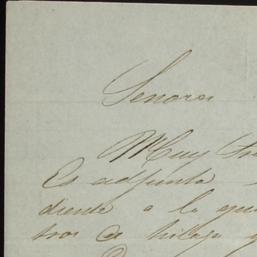 Senores
Muy
Es adjunta
diente a la que
tros de hilaza y